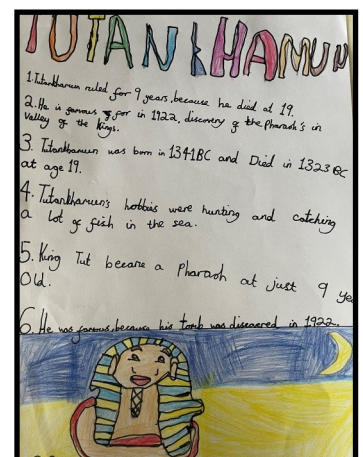 TUTANKHAMUN
1. Tutankhamun ruled for 9 years, because he died at 19.
2. He is famous for in 1922, discovery of the Pharaoh's in
Valley of the Kings.
3. Tutankhamun was born in 1341BC and Died in 1323 BC
at age 19.
4. Tutankhamun's hobbies were hunting and catching
a lot of fish in the sea.
5. King Tut became a Pharaoh at just 9 yea
Old.
6. He was famous, because his tomb was discovered in 1922.